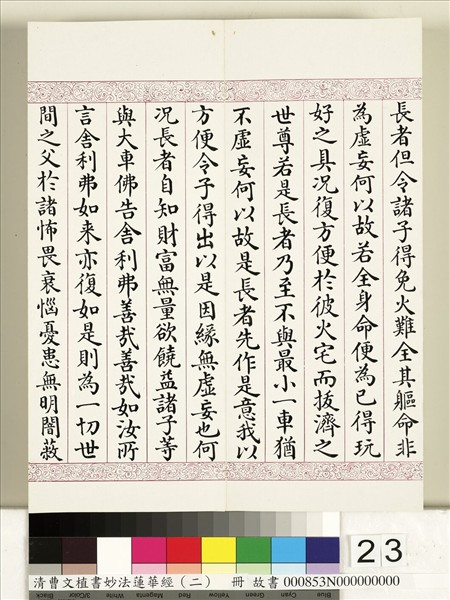 長者但令諸子得免火難全其軀命非
為虛妄何以故若全身命便為已得玩
好之具况復方便於彼火宅而拔濟之
世尊若是長者乃至不與最小一車猶
不虛妄何以故是長者先作是意我以
方便令子得出以是因緣無虛妄也何
况長者自知財富無量欲饒益諸子等
與大車佛告舍利弗善哉善哉如汝所
言舍利弗如来亦復如是則為一切世
間之父於諸怖畏衰惱憂患無明闇蔽
23
清曹文植書妙法蓮華經(二) 冊 故書 000853N000000000
Blue Cyan Green Yellow Red Magenta White 3/Color Black